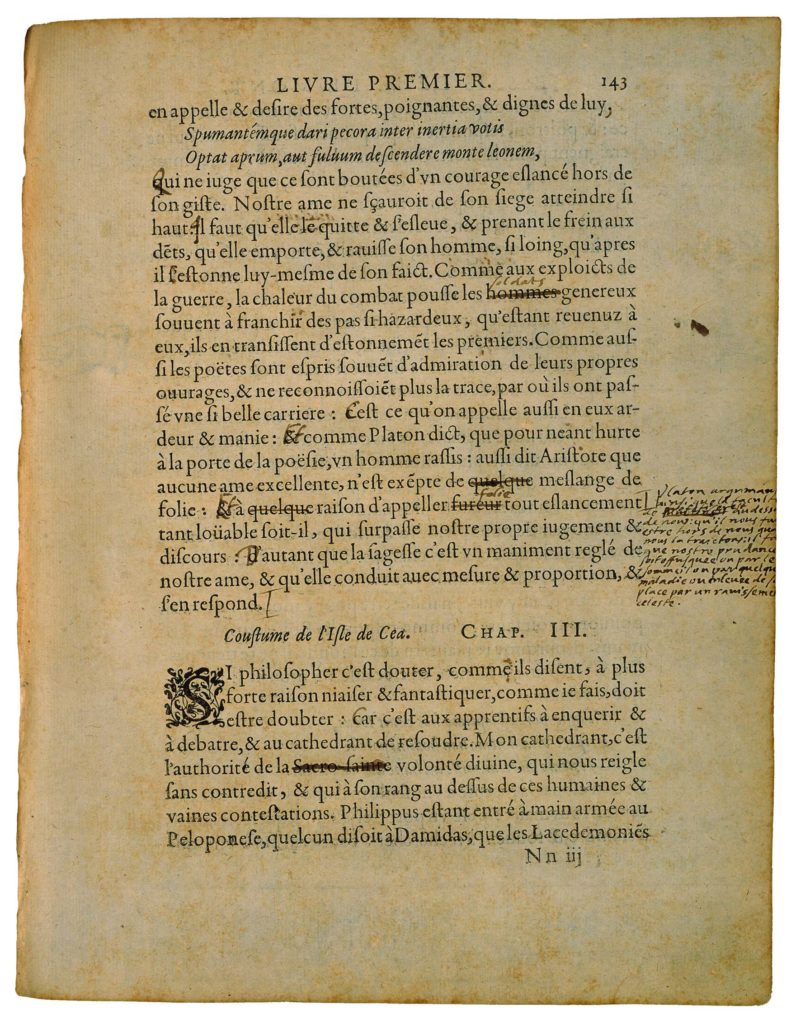 LIVRE PREMIER. 143
en appelle & deſire des fortes, poignantes, & dignes de luy,
Spumantémque dari pecora inter inertia votis
Optat aprum, aut fuluum deſcendere monte leonem,
Qui ne iuge que ce ſont boutées d'vn courage eslancé hors de
ſon giſte. Noſtre ame ne ſçauroit de ſon ſiege atteindre ſi
haut: Il faut qu'elle le quitte & ſ'eſleue, & prenant le frein aux
dẽts, qu'elle emporte, & rauiſſe ſon homme, ſi loing, qu'apres
il ſ'eſtonne luy-meſme de ſon faict. Comme aux exploicts de
soldats
la guerre, la chaleur du combat pouſſe les hommes genereux
ſouuent à franchir des pas ſi hazardeux, qu'eſtant reuenuz à
eux, ils en tranſiſſent d'eſtonnemẽt les premiers. Comme auſ-
ſi les poëtes ſont eſpris ſouuẽt d'admiration de leurs propres
ouurages, & ne reconnoiſſoiẽt plus la trace, par où ils ont paſ-
ſé vne ſi belle carriere : C'eſt ce qu'on appelle auſſi en eux ar-
deur & manie : Et comme Platon dict, que pour neant hurte
à la porte de la poëſie, vn homme raſſis : auſſi dit Ariſtote que
aucune ame excellente, n'eſt exẽpte de quelque meslange de
folie
folie : Et à quelque raiſon d'appeller fureur tout eslancement
tant loüable ſoit-il, qui ſurpaſſe noſtre propre iugement &
diſcours : D'autant que la ſageſſe c'eſt vn maniment reglé de
noſtre ame, & qu'elle conduit auec meſure & proportion, &
ſ'en reſpond.
Platon arguman
ainsi que la facult
au dessus
de nous: qu'il nous fau
estre hors de nous
nous la traictons: il fa
que nostre prudance
soit offusquee ou par le
sommeil ou par quelque
maladie ou enlevee de s
place par un ravisseme
celeste.
Couſtume de l'Iſle de Cea. CHAP. III.
SI philoſopher c'eſt douter, comme ils diſent, à plus
forte raiſon niaiſer & fantaſtiquer, comme ie fais, doit
eſtre doubter : Car c'eſt aux apprentifs à enquerir &
à debatre, & au cathedrant de reſoudre. Mon cathedrant, c'eſt
l'authorité de la Sacro-ſainte volonté diuine, qui nous reigle
ſans contredit, & qui à ſon rang au deſſus de ces humaines &
vaines conteſtations. Philippus eſtant entré à main armée au
Peloponeſe, quelcun diſoit à Damidas, que les Lacedemoniẽs
Nn iij